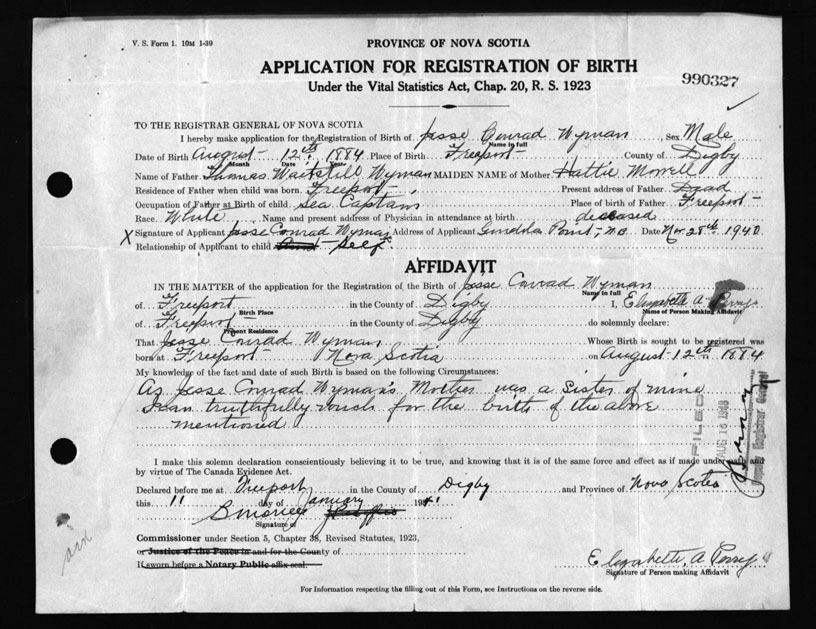 V. S. Form 1. 10M 1-39
PROVINCE OF NOVA SCOTIA
APPLICATION FOR REGISTRATION OF BIRTH
990327
Under the Vital Statistics Act, Chap. 20, R. S. 1923
TO THE REGISTRAR GENERAL OF NOVA SCOTIA
I hereby make application for the Registration of Birth of Jesse Conrad Wyman Sex Male
Name in full
Date of Birth August 12th 1884 Place of Birth Freeport County of Digby
Month Date Year
Name of Father Thomas Waitstill Wyman MAIDEN NAME of Mother Hattie Morrell
Residence of Father when child was born Freeport Present address of Father Dead
Occupation of Father at Birth of child Sea Captain Place of birth of Father Freeport
Race White Name and present address of Physician in attendance at birth deceased
X Signature of Applicant Jesse Conrad Wyman Address of Applicant Gundola Point, N.B. Date Nov 28th 1940
Relationship of Applicant to child Aunt Self
AFFIDAVIT
IN THE MATTER of the application for the Registration of the Birth of Jesse Conrad Wyman
Name in full
of Freeport in the County of Digby I, Elizabeth A Perry
Birth Place Name of Person Making Affidavit
of Freeport in the County of Digby do solemnly declare:
Present Residence
That Jesse Conrad Wyman Whose Birth is sought to be registered was
born at Freeport Nova Scotia on August 12th 1884
My knowledge of the fact and date of such Birth is based on the following Circumstances:
As Jesse Conrad Wyman's Mother was a Sister of mine
I can truthfully vouch for the birth of the above
mentioned
FILED
AUG 16
Deputy Registrar General
I make this solemn declaration conscientiously believing it to be true, and knowing that it is of the same force and effect as if made under oath and
by virtue of The Canada Evidence Act.
Declared before me at Freeport in the County of Digby and Province of Nova Scotia
this 11 day of January 1941
Signature of
Commissioner under Section 5, Chapter 38, Revised Statutes, 1923,
or Justice of the Peace in and for the County of
If sworn before a Notary Public affix seal.
Elizabeth A Perry
Signature of Person making Affidavit
For Information respecting the filling out of this Form, see Instructions on the reverse side.